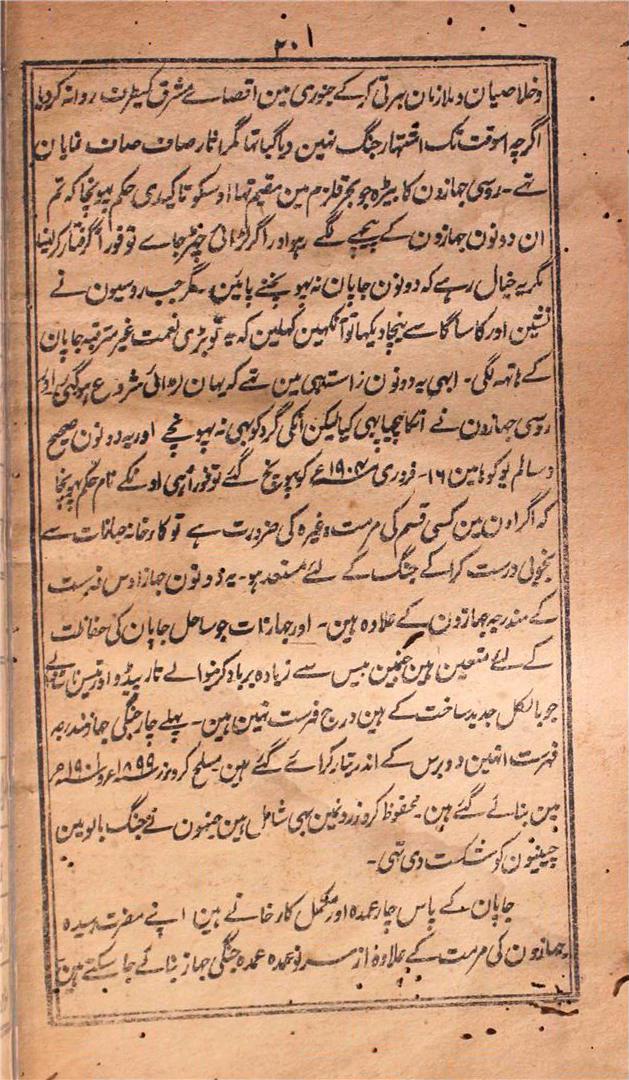 ۲۰۱
وخلاصیان وملازمان بھرتی کرکے جنوری مین اقصاے مشرق کیطرف روانہ کردیا
اگرچہ اسوقت تک اشتہار جنگ نہین دیا گیا تہا مگر آثار صاف صاف نمایان
تہے۔ روسی جہازون کا بیڑہ جو بحر قلزم مین مقیم تہا اوسکو تاکیدی حکم پہونچا کہ تم
ان دونون جہازون کے پیچہے لگے رہو اور اگر لڑائی چہڑ جاے تو فوراً گرفتار کرلینا
مگر یہ خیال رہے کہ دونون جاپان نہ پہونچنے پائین۔ مگر جب روسیون نے
نشین اور کاساگا سے نیچا دیکہا تو آنکہین کہلین کہ یہ تو بڑی نعمت غیر مترقبہ جاپان
کے ہاتہہ لگی۔ ابہی یہ دونون راستہ ہی مین تہے کہ یہان لڑائی شروع ہوگئی اور
روسی جہازون نے انکا پیچہا بہی کیا لیکن انکی گرد کو بہی نہ پہونچے اور یہ دونون صحیح
وسالم یوکوہامین ۱۶۔ فروری ۱۹۰۴ء کو پہونچ گئے تو فوراً ہی اونکے نام حکم پہونچا
کہ اگر اون مین کسی قسم کی مرمت وغیرہ کی ضرورت ہے تو کارخانہ جہازات سے
بخوبی درست کراکے جنگ کے لئے مستعد ہو۔ یہ دونون جہاز اوس فہرست
کے مندرجہ جہازون کے علاوہ ہین۔ اور جہازات جو ساحل جاپان کی حفاظت
کے لئے متعین ہین جنمین بیس سے زیادہ برباد کرنیوالے تارپیڈو اور تیس
جو بالکل جدید ساخت کے ہین درج فہرست نہین ہین۔ پہلے چار جنگی جہاز مندرجہ
فہرست انہین دو برس کے اندر تیار کرائے گئے ہین مسلح کروزر ۱۸۹۹ء و ۱۹۰۱ء
مین بنائے گئے ہین۔ محفوظ کروزرونمین بہی شامل ہین جنہون نے جنگ یالو مین
چینیون کو شکست دی تہی۔
جاپان کے پاس چار عمدہ اور مکمل کارخانے ہین اپنے مضرت رسیدہ
جہازون کی مرمت کے علاوہ از سر نو عمدہ عمدہ جنگی جہاز بنائے جاسکتے ہین